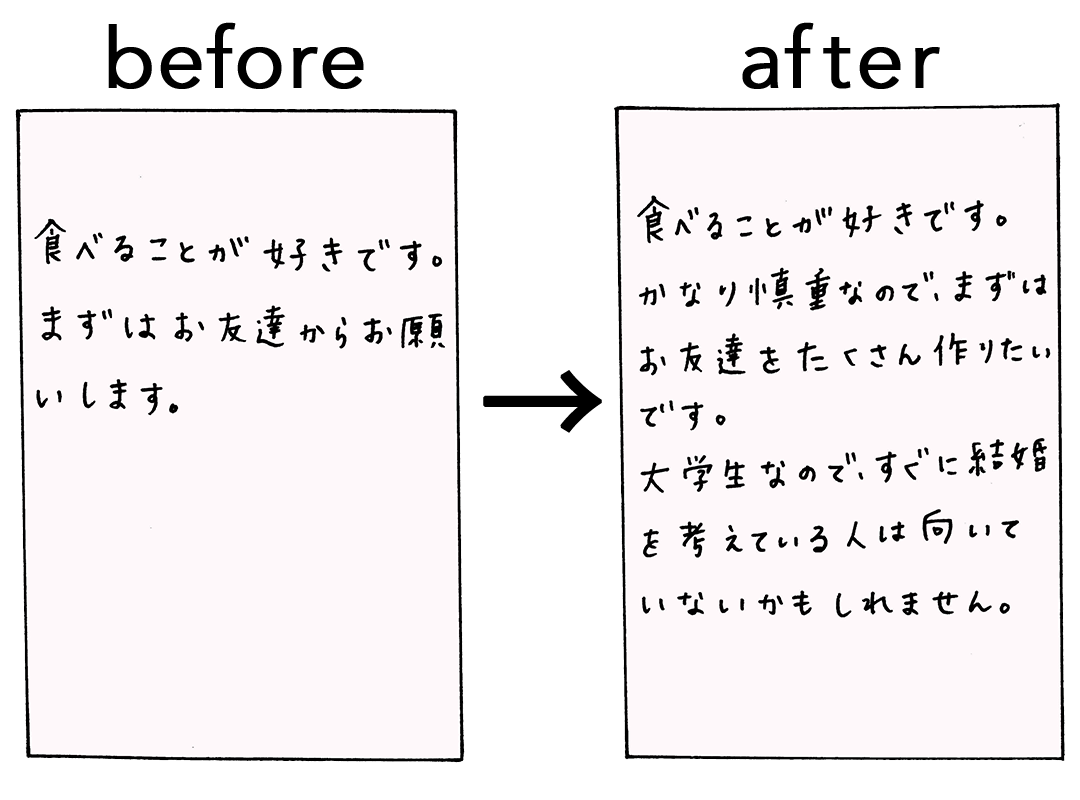 before
食べることが好きです。
まずはお友達からお願
いします。
after
食べることが好きです。
かなり慎重なので、まずは
お友達をたくさん作りたい
です。
大学生なので、すぐに結婚
を考えている人は向いて
いないかもしれません。